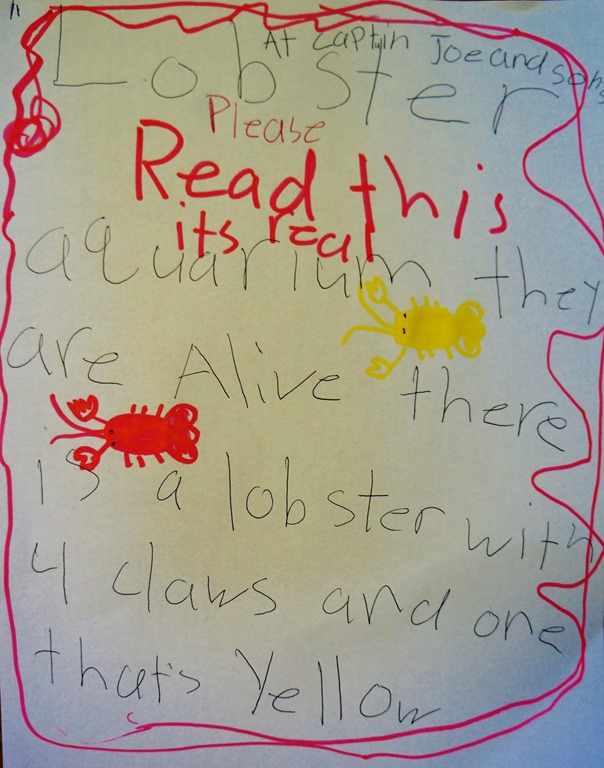 At Captain Joe and sons
Lobster
Please
Read this
its real
aquarium they
are Alive there
is a lobster with
4 claws and one
that's Yellow